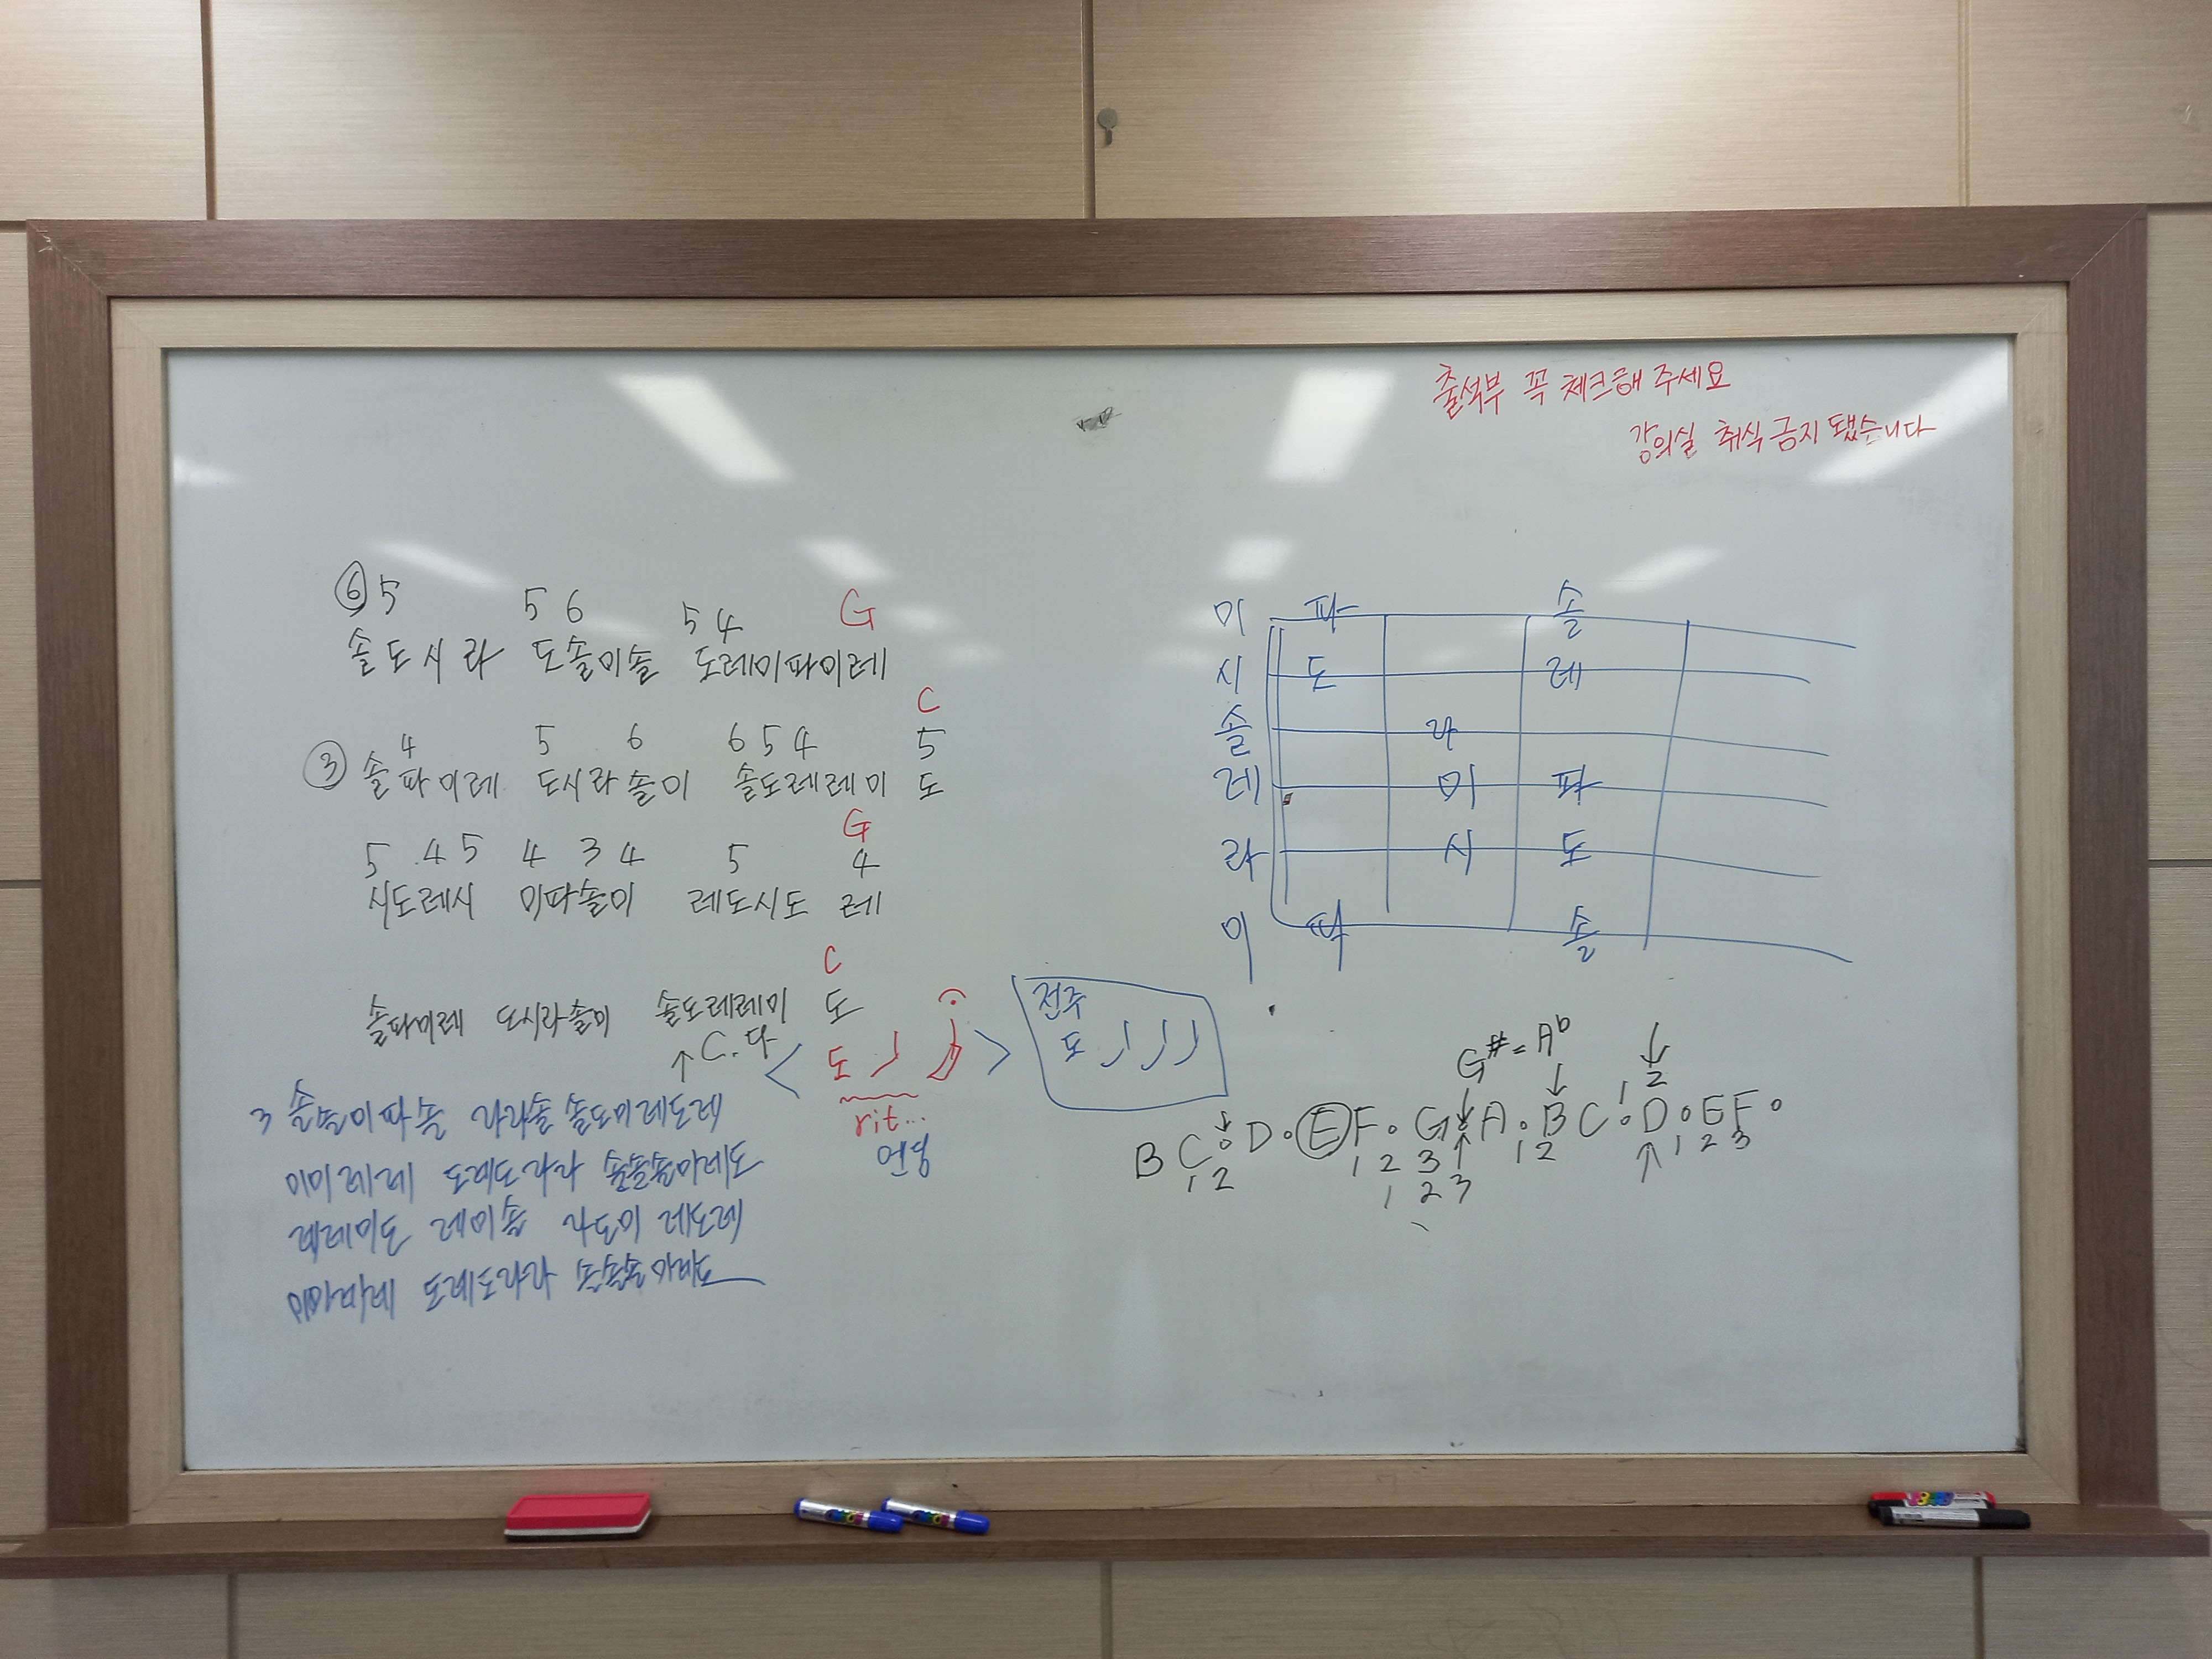 출석부 꼭 체크해 주세요
강의실 취식 금지 됐습니다
⑥ 5 5 6 5 4 G
솔도시라 도솔미솔 도레미파미레
C
4 5 6 6 5 4 5
③ 솔파미레 도시라솔미 솔도레레미 도
G
5 4 5 4 3 4 5 4
시도레시 미파솔미 레도시도 레
C
솔파미레 도시라솔미 솔도레레미 도
↑ C.
< 도 >
rit...
엔딩
전주
도
3 솔솔미파솔 라라솔 솔도미레도레
미미레레 도레도라라 솔솔솔미레도
레레미도 레미솔 라도미 레도레
도레도라라 솔솔솔
미 파 솔
시 도 레
솔 라
레 미 파
라 시 도
미 파 솔
G# = Ab
↓ ↓ ↓ 2
B C D E F G A B C D E F
1 2 1 2 3 1 2 1 2 3
1 2 3